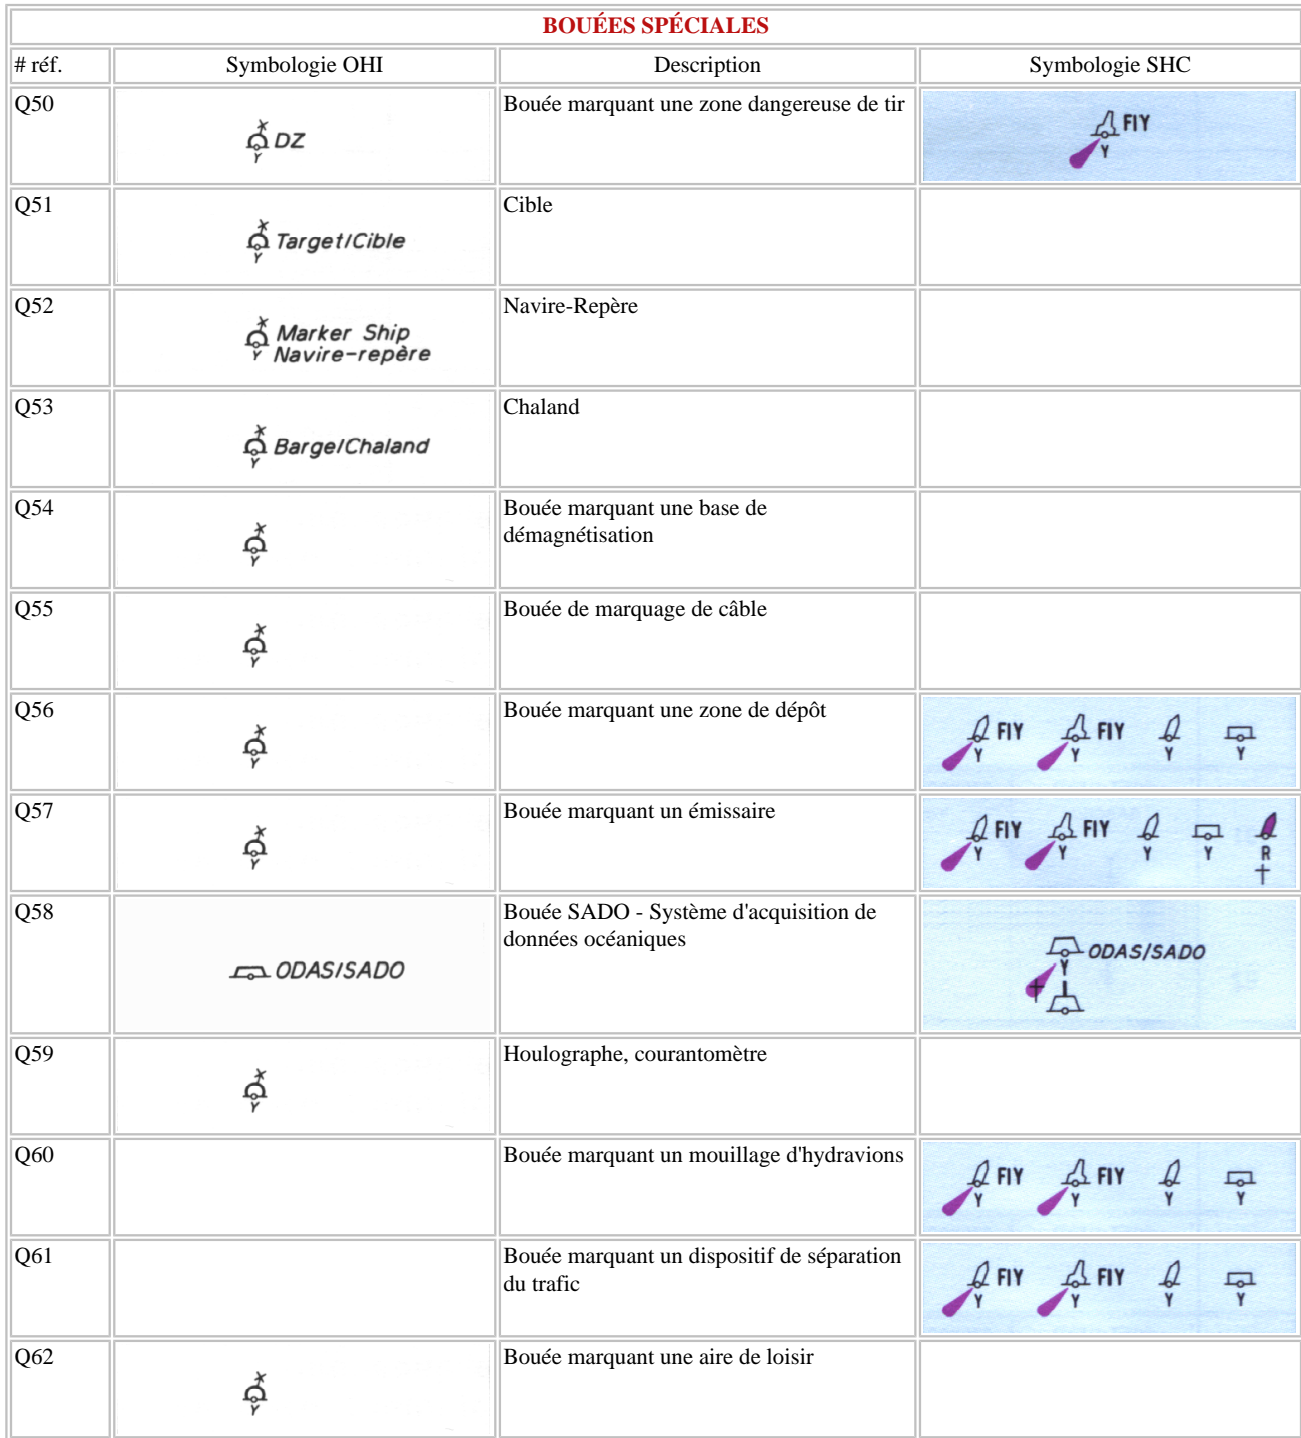 BOUÉES SPÉCIALES
# réf. Symbologie OHI Description Symbologie SHC
Q50 DZ Y Bouée marquant une zone dangereuse de tir FlY Y
Q51 Target/Cible Y Cible
Q52 Marker Ship Navire-Repère
Y Navire-repère
Q53 Barge/Chaland Y Chaland
Q54 Y Bouée marquant une base de
démagnétisation
Q55 Y Bouée de marquage de câble
Q56 Y Bouée marquant une zone de dépôt FlY Y FlY Y Y Y
Q57 Y Bouée marquant un émissaire FlY Y FlY Y Y Y R
Q58 ODAS/SADO Bouée SADO - Système d'acquisition de
données océaniques ODAS/SADO Y
Q59 Y Houlographe, courantomètre
Q60 Bouée marquant un mouillage d'hydravions FlY Y FlY Y Y Y
Q61 Bouée marquant un dispositif de séparation
du trafic FlY Y FlY Y Y Y
Q62 Y Bouée marquant une aire de loisir